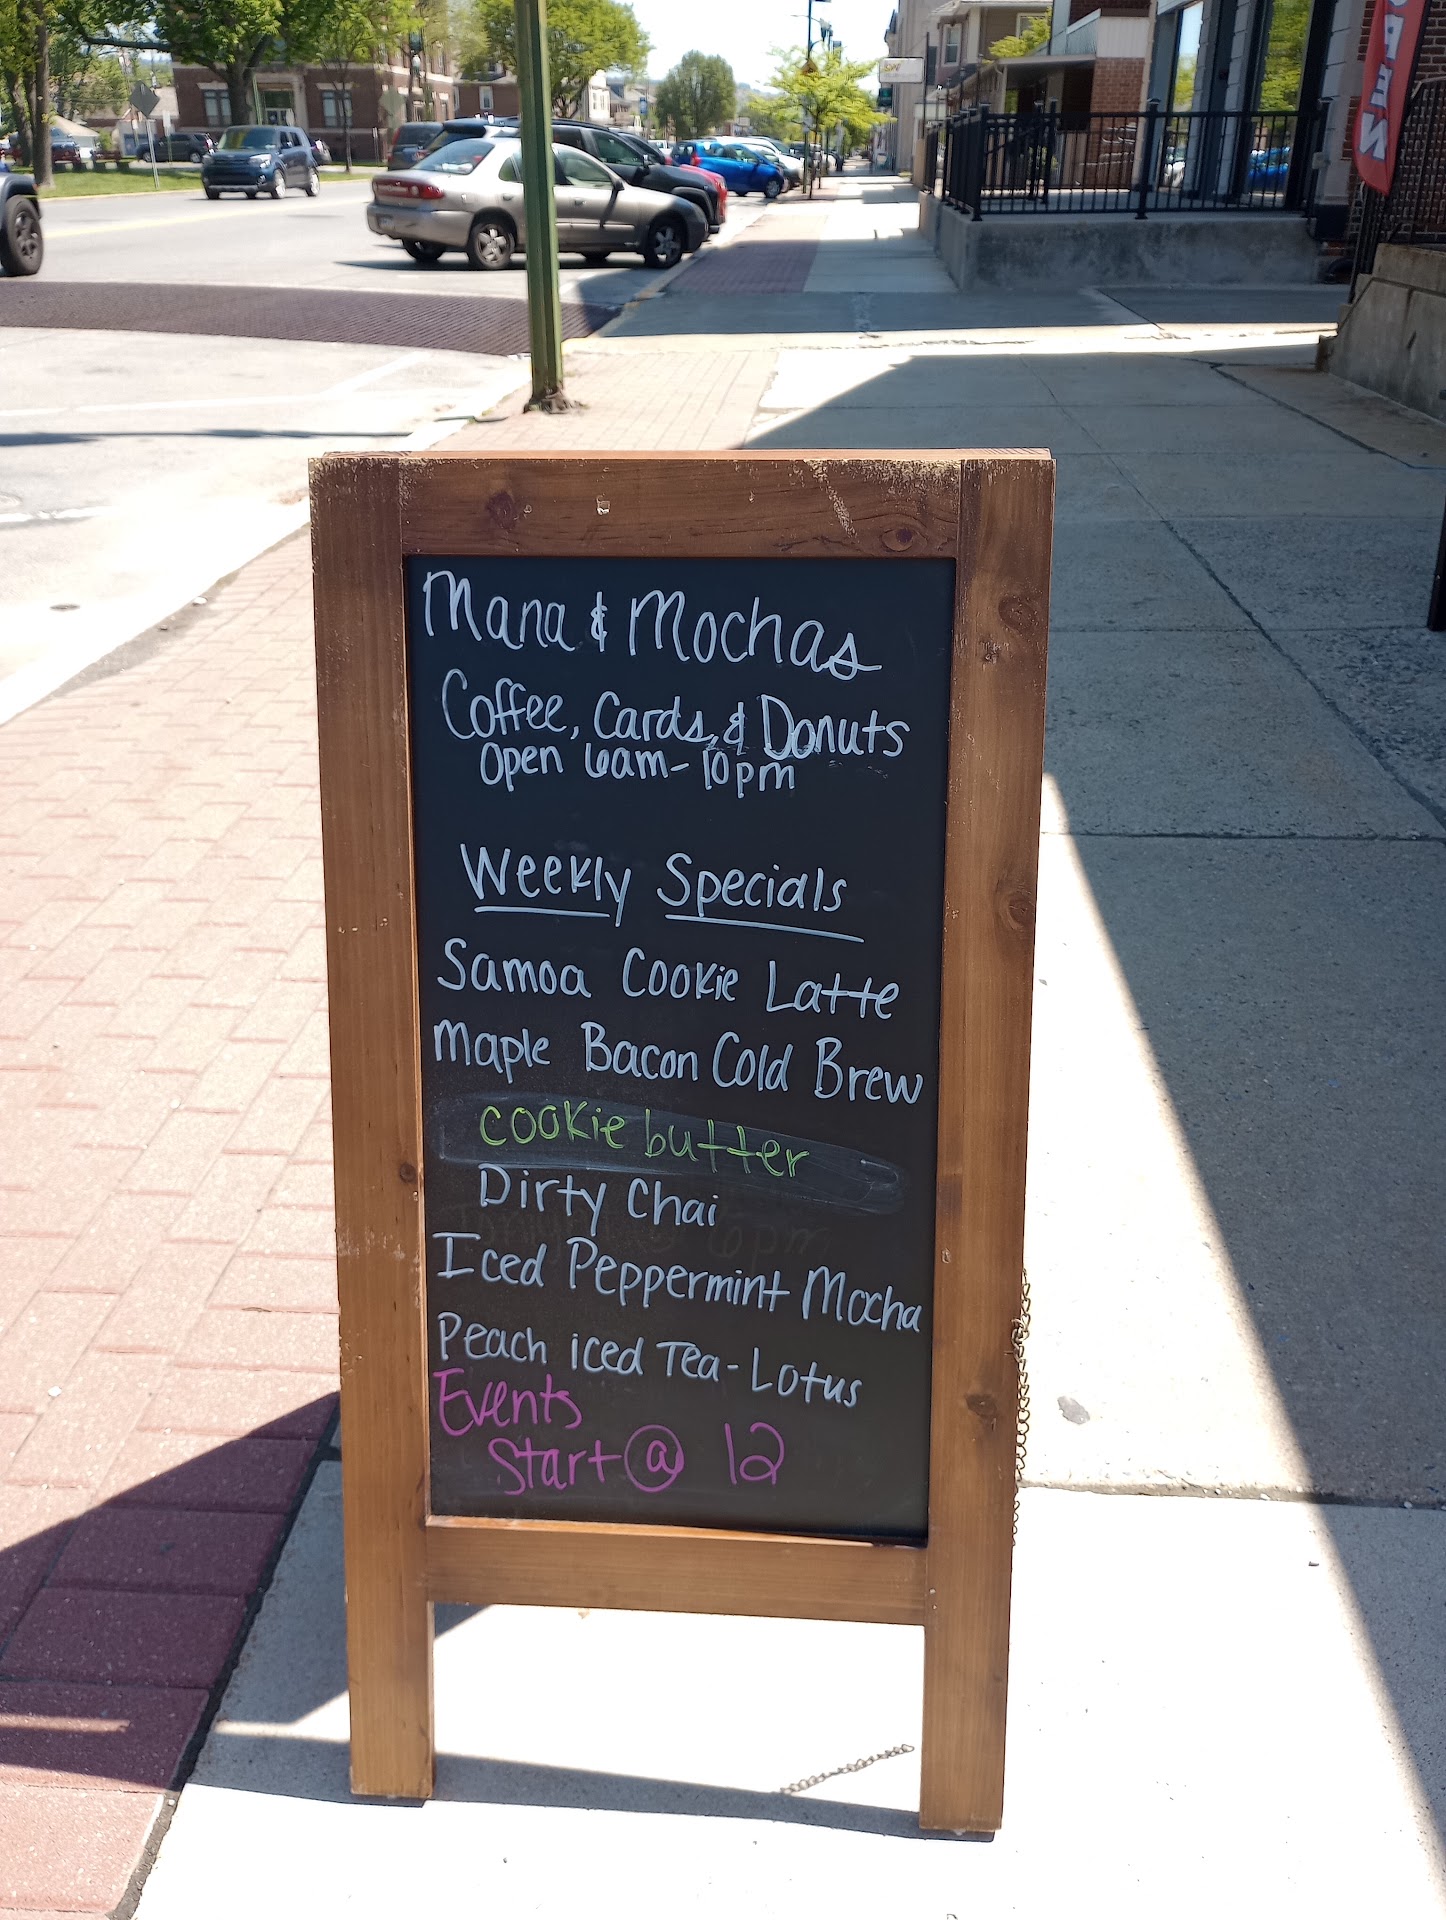 Mana & Mochas
Coffee, Cards, & Donuts
Open 6am-10pm
Weekly Specials
Samoa Cookie Latte
Maple Bacon Cold Brew
cookie butter
Dirty Chai
Iced Peppermint Mocha
Peach iced Tea-Lotus
Events
Start @ 12